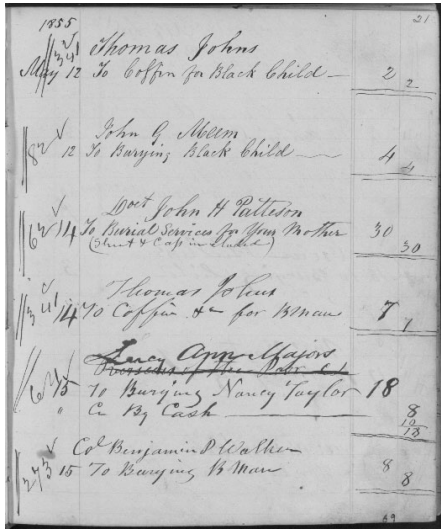 1855 21
341 Thomas Johns
May 12 To Coffin for Black Child — 2 2
John G Meem
82 12 To Burying Black Child — 4 4
Doct John H Patteson
62 14 To Burial Services for Your Mother 30
(Shroud & Cap included) 30
Thomas Johns
341 14 To Coffin &c for B Man 7 7
Lucy Ann Majors
Overseers of the Poor
62 15 To Burying Nancy Taylor 18
" Cr By Cash — 8
10
18
Col Benjamin P Walker
273 15 To Burying B Man 8 8